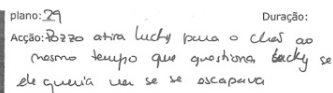 plano: 29 Duração:
Acção: Pozzo atira Lucky para o chão ao
mesmo tempo que questiona Lucky se
ele queria ver se se escapava